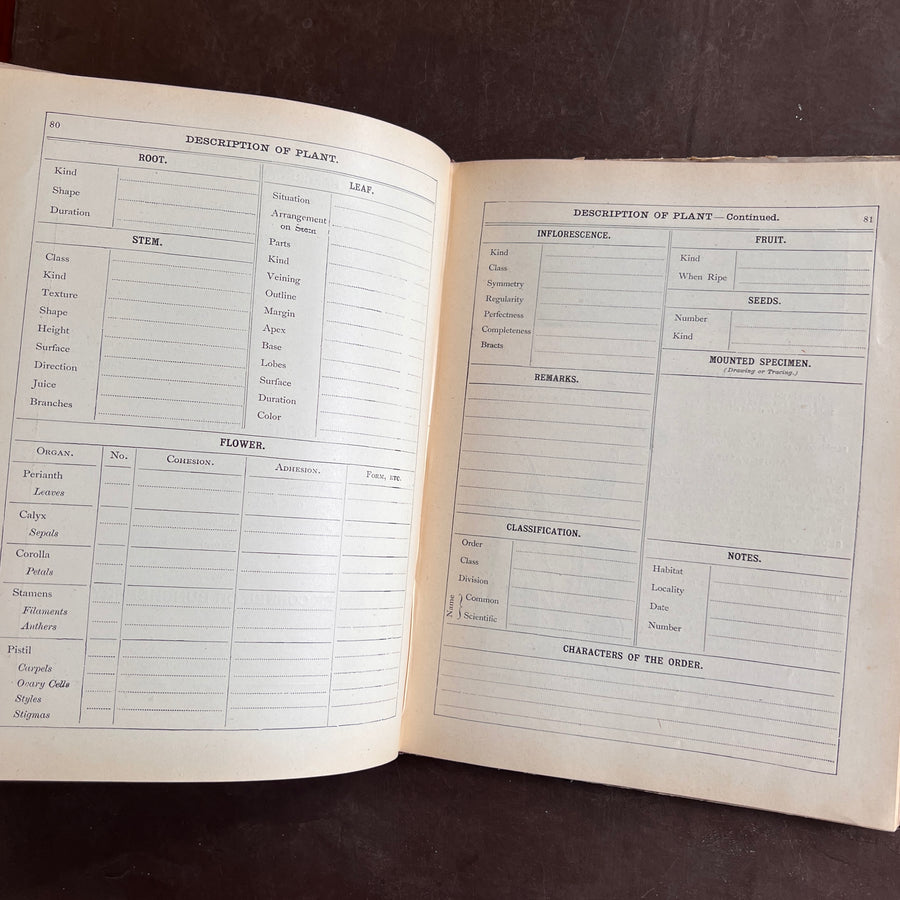 80
DESCRIPTION OF PLANT.
ROOT.
Kind
Shape
Duration
STEM.
Class
Kind
Texture
Shape
Height
Surface
Direction
Juice
Branches
LEAF.
Situation
Arrangement
on Stem
Parts
Kind
Veining
Outline
Margin
Apex
Base
Lobes
Surface
Duration
Color
FLOWER.
ORGAN. No. COHESION. ADHESION. FORM, ETC.
Perianth
Leaves
Calyx
Sepals
Corolla
Petals
Stamens
Filaments
Anthers
Pistil
Carpels
Ovary Cells
Styles
Stigmas
DESCRIPTION OF PLANT—Continued. 81
INFLORESCENCE.
Kind
Class
Symmetry
Regularity
Perfectness
Completeness
Bracts
REMARKS.
CLASSIFICATION.
Order
Class
Division
Name
Common
Scientific
FRUIT.
Kind
When Ripe
SEEDS.
Number
Kind
MOUNTED SPECIMEN.
(Drawing or Tracing.)
NOTES.
Habitat
Locality
Date
Number
CHARACTERS OF THE ORDER.